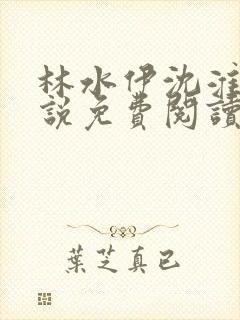 林水伊沈淮
說免費閱讀
葉芝真已